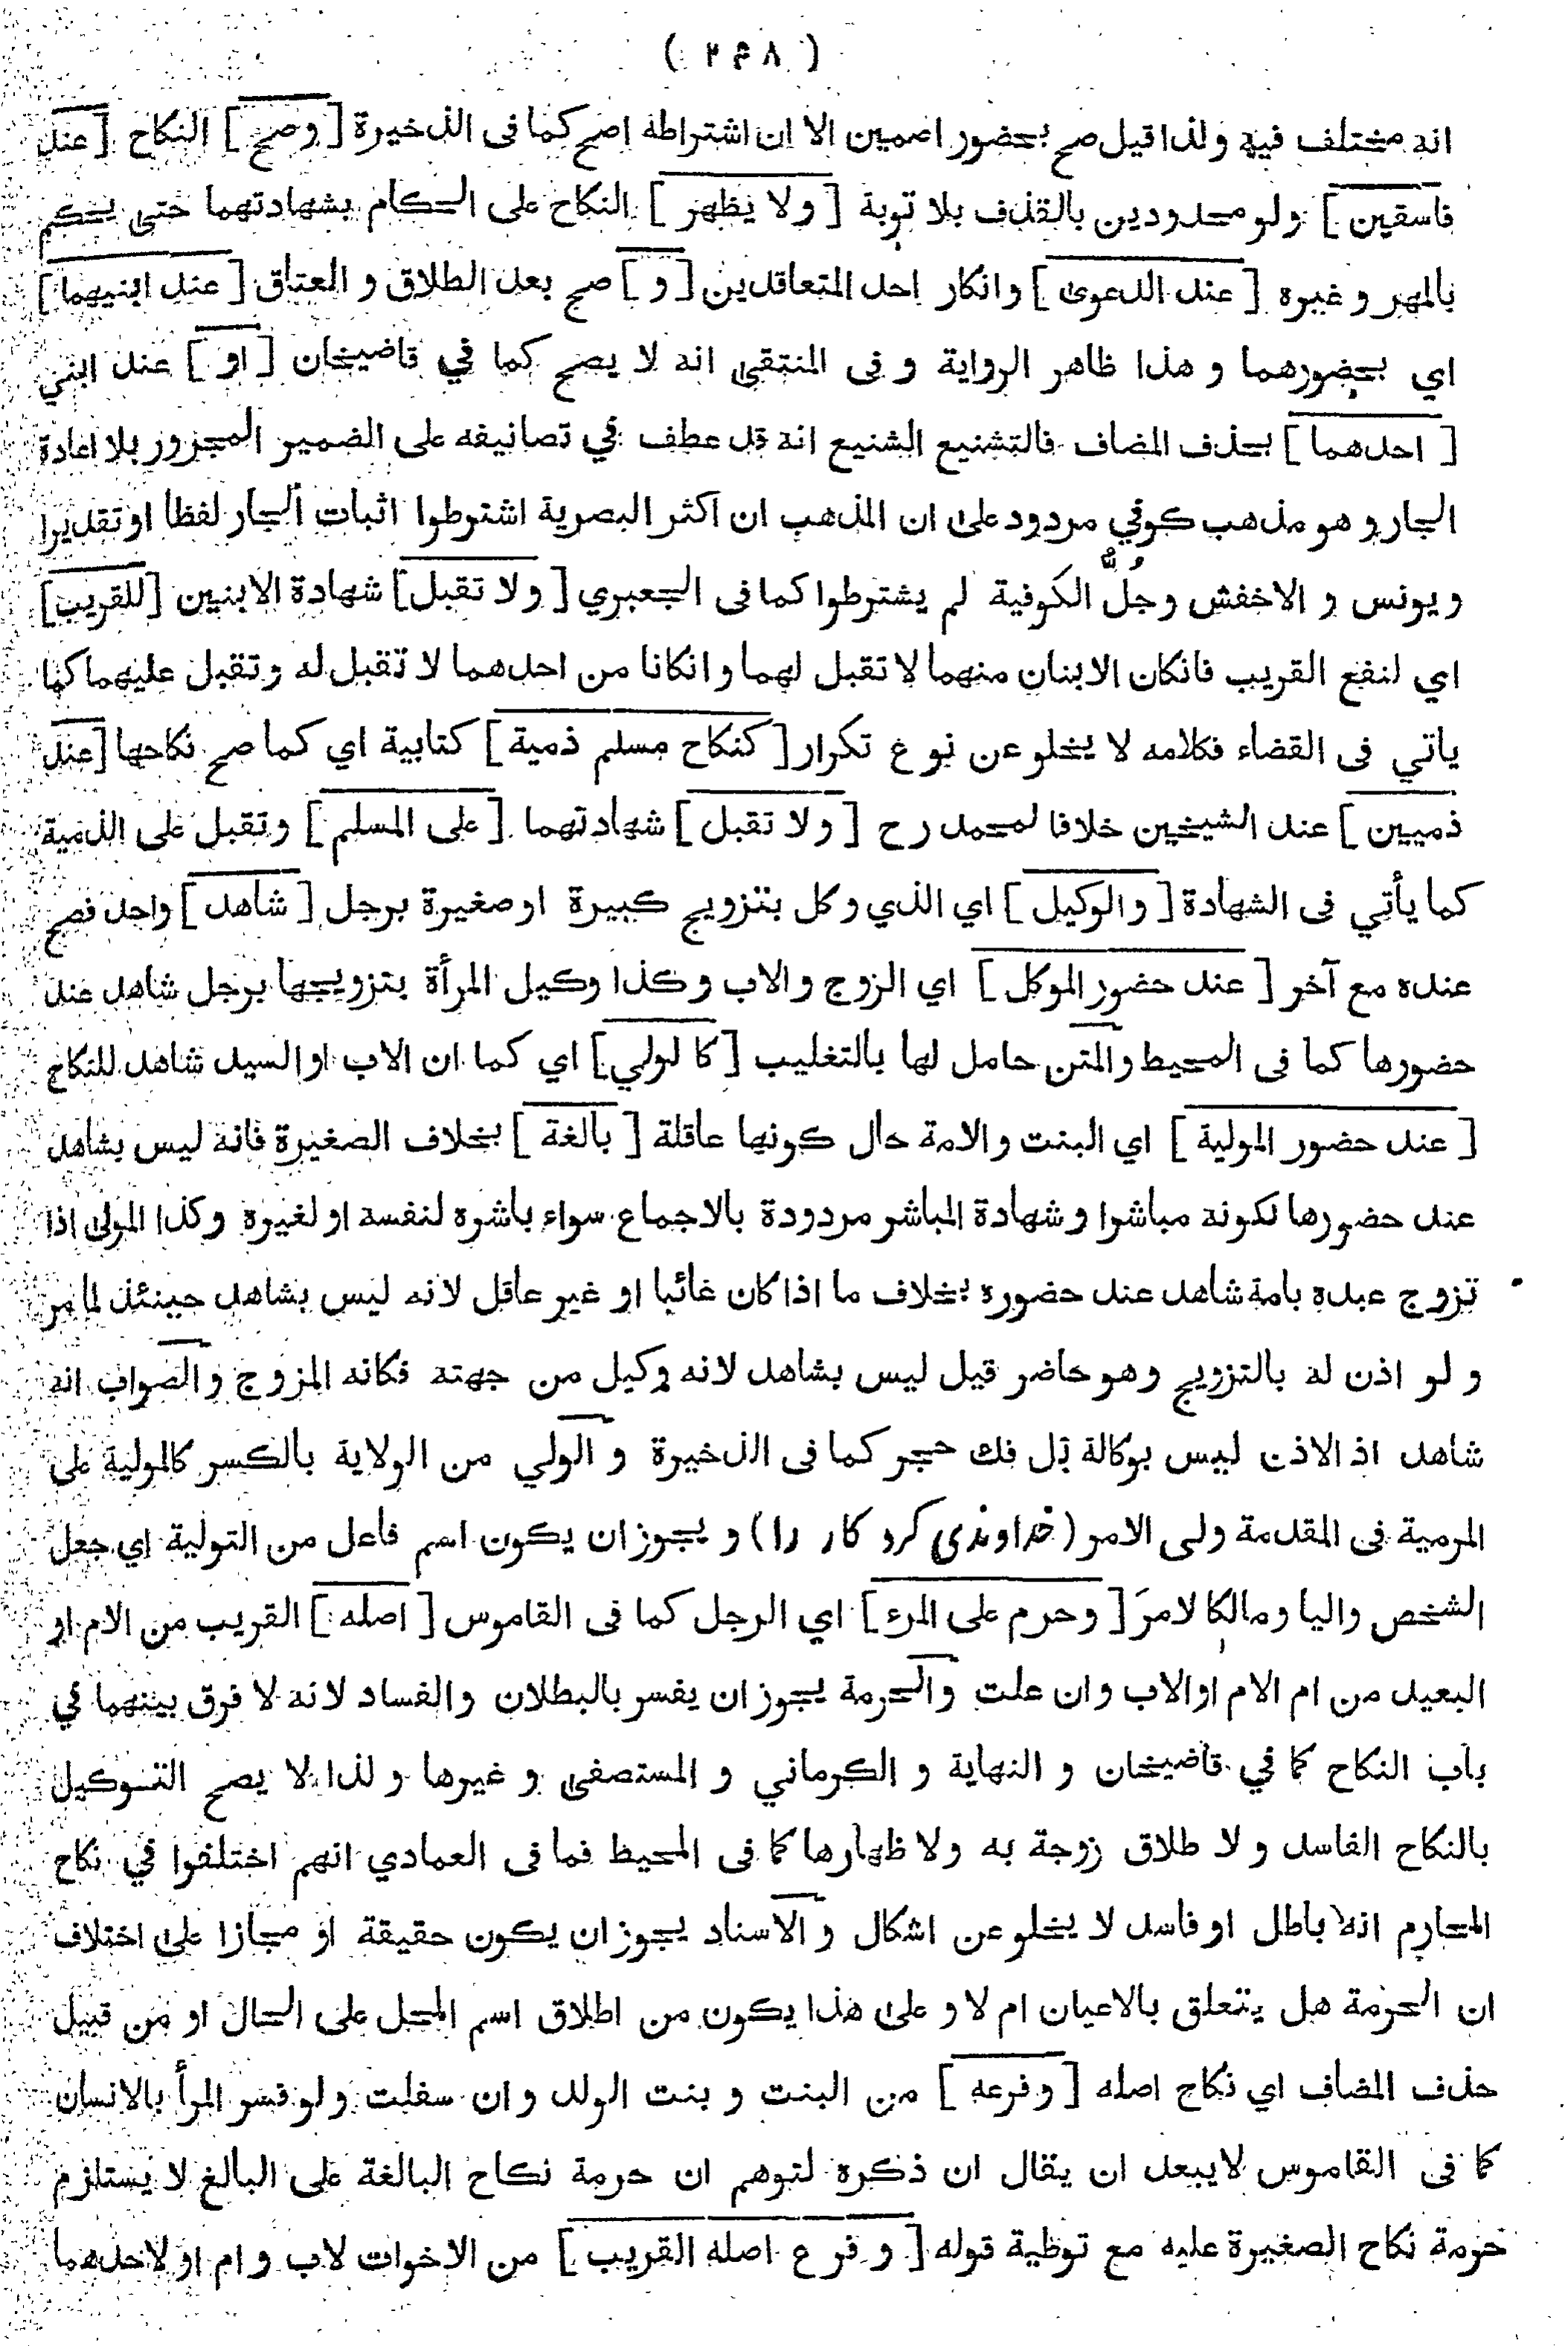 ( ٢٤٨ )
انه مختلف فيه ولذا قيل صح بحضور اصمين الا ان اشتراطه اصح كما فى الذخيرة [ وصح ] النكاح [ عند
فاسقين ] ولو محدودين بالقذف بلا توبة [ ولا يظهر ] النكاح على الحكام بشهادتهما حتى يحكم
بالمهر و غيره [ عند الدعوى ] وانكار احد المتعاقدين [ و ] صح بعد الطلاق و العتاق [ عند ابنيهما ]
اي بحضورهما و هذا ظاهر الرواية و فى المنتقى انه لا يصح كما في قاضيخان [ او ] عند ابني
[ احدهما ] بحذف المضاف فالتشنيع الشنيع انه قد عطف في تصانيفه على الضمير المجرور بلا اعادة
الجار و هو مذهب كوفي مردود على ان المذهب ان اكثر البصرية اشترطوا اثبات الجار لفظا او تقديرا
و يونس و الاخفش وجُلُّ الكوفية لم يشترطوا كما فى الجعبري [ ولا تقبل ] شهادة الابنين [ للقريب ]
اي لنفع القريب فانكان الابنان منهما لا تقبل لهما وانكانا من احدهما لا تقبل له و تقبل عليهما كما
ياتي فى القضاء فكلامه لا يخلو عن نوع تكرار [ كنكاح مسلم ذمية ] كتابية اي كما صح نكاحها [ عند
ذميين ] عند الشيخين خلافا لمحمد رح [ ولا تقبل ] شهادتهما [ على المسلم ] وتقبل على الذمية
كما يأتي فى الشهادة [ والوكيل ] اي الذي وكل بتزويج كبيرة او صغيرة برجل [ شاهد ] واحد فصح
عنده مع آخر [ عند حضور الموكل ] اي الزوج والاب وكذا وكيل المرأة بتزويجها برجل شاهد عند
حضورها كما فى المحيط والمتن حامل لها بالتغليب [ كالولي ] اي كما ان الاب او السيد شاهد للنكاح
[ عند حضور المولية ] اي البنت والامة حال كونها عاقلة [ بالغة ] بخلاف الصغيرة فانه ليس بشاهد
عند حضورها لكونه مباشرا وشهادة المباشر مردودة بالاجماع سواء باشره لنفسه او لغيره وكذا المولى اذا
تزوج عبده بامة شاهد عند حضوره بخلاف ما اذا كان غائبا او غير عاقل لانه ليس بشاهد حينئذ لما مر
و لو اذن له بالتزويج وهو حاضر قيل ليس بشاهد لانه وكيل من جهته فكانه المزوج والصواب انه
شاهد اذ الاذن ليس بوكالة بل فك حجر كما فى الذخيرة و الولي من الولاية بالكسر كالمولية على
المرمية فى المقدمة ولى الامر (خداوندى كرد كار را) و يجوز ان يكون اسم فاعل من التولية اي جعل
الشخص واليا ومالكا لامرَ [ وحرم على المرء ] اي الرجل كما فى القاموس [ اصله ] القريب من الام او
البعيد من ام الام او الاب وان علت والحرمة يجوز ان يفسر بالبطلان والفساد لانه لا فرق بينهما في
باب النكاح كما في قاضيخان و النهاية و الكرماني و المستصفى و غيرها و لذا لا يصح التوكيل
بالنكاح الفاسد و لا طلاق زوجة به ولا ظهارها كما فى المحيط فما فى العمادي انهم اختلفوا في نكاح
المحارم انه باطل او فاسد لا يخلو عن اشكال و الاسناد يجوز ان يكون حقيقة او مجازا على اختلاف
ان الحرمة هل يتعلق بالاعيان ام لا و على هذا يكون من اطلاق اسم المحل على الحال او من قبيل
حذف المضاف اي نكاح اصله [ و فرعه ] من البنت و بنت الولد و ان سفلت ولو فسر المرأ بالانسان
كما فى القاموس لايبعد ان يقال ان ذكره لتوهم ان حرمة نكاح البالغة على البالغ لا يستلزم
حرمة نكاح الصغيرة عليه مع توطية قوله [ و فرع اصله القريب ] من الاخوات لاب و ام او لاحدهما